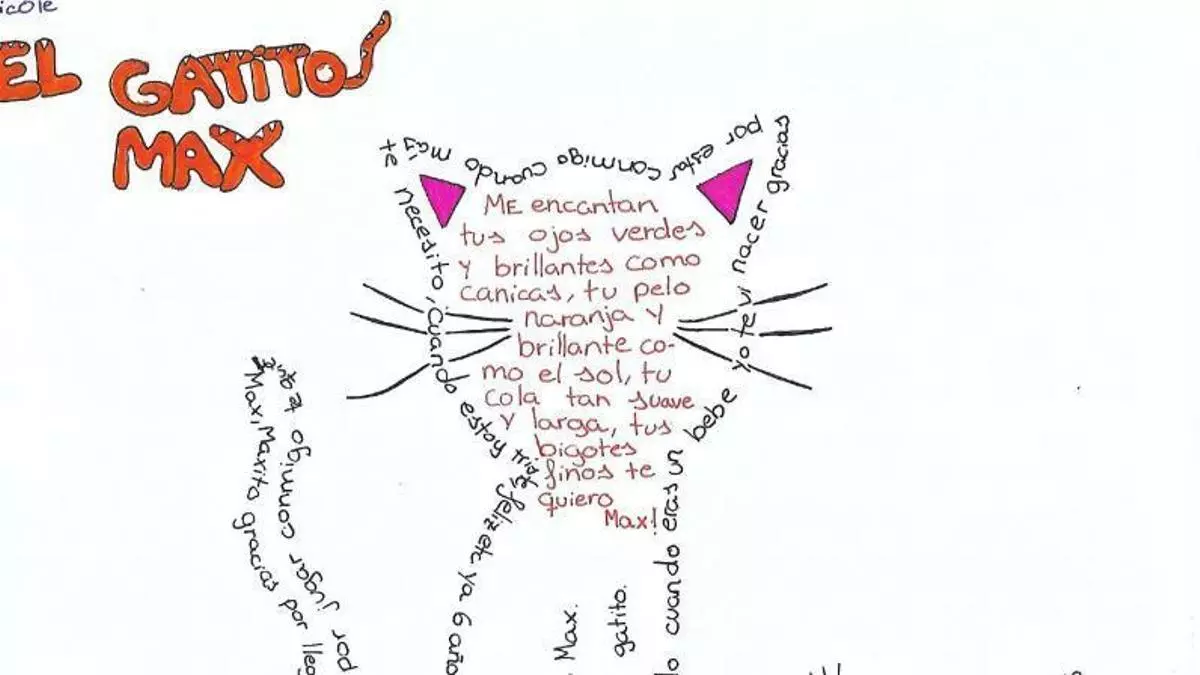 EL GATITO
MAX
ME encantan
tus ojos verdes
y brillantes como
canicas, tu pelo
naranja y
brillante co-
mo el sol, tu
cola tan suave
y larga, tus
bigotes
finos te
quiero
Max!
cuando eras un bebe yo te vi nacer gracias
por estar conmigo cuando más
te necesito, cuando estoy triste, feliz etc ya 6
Max, Maxito gracias por
por jugar conmigo
Max.
gatito.